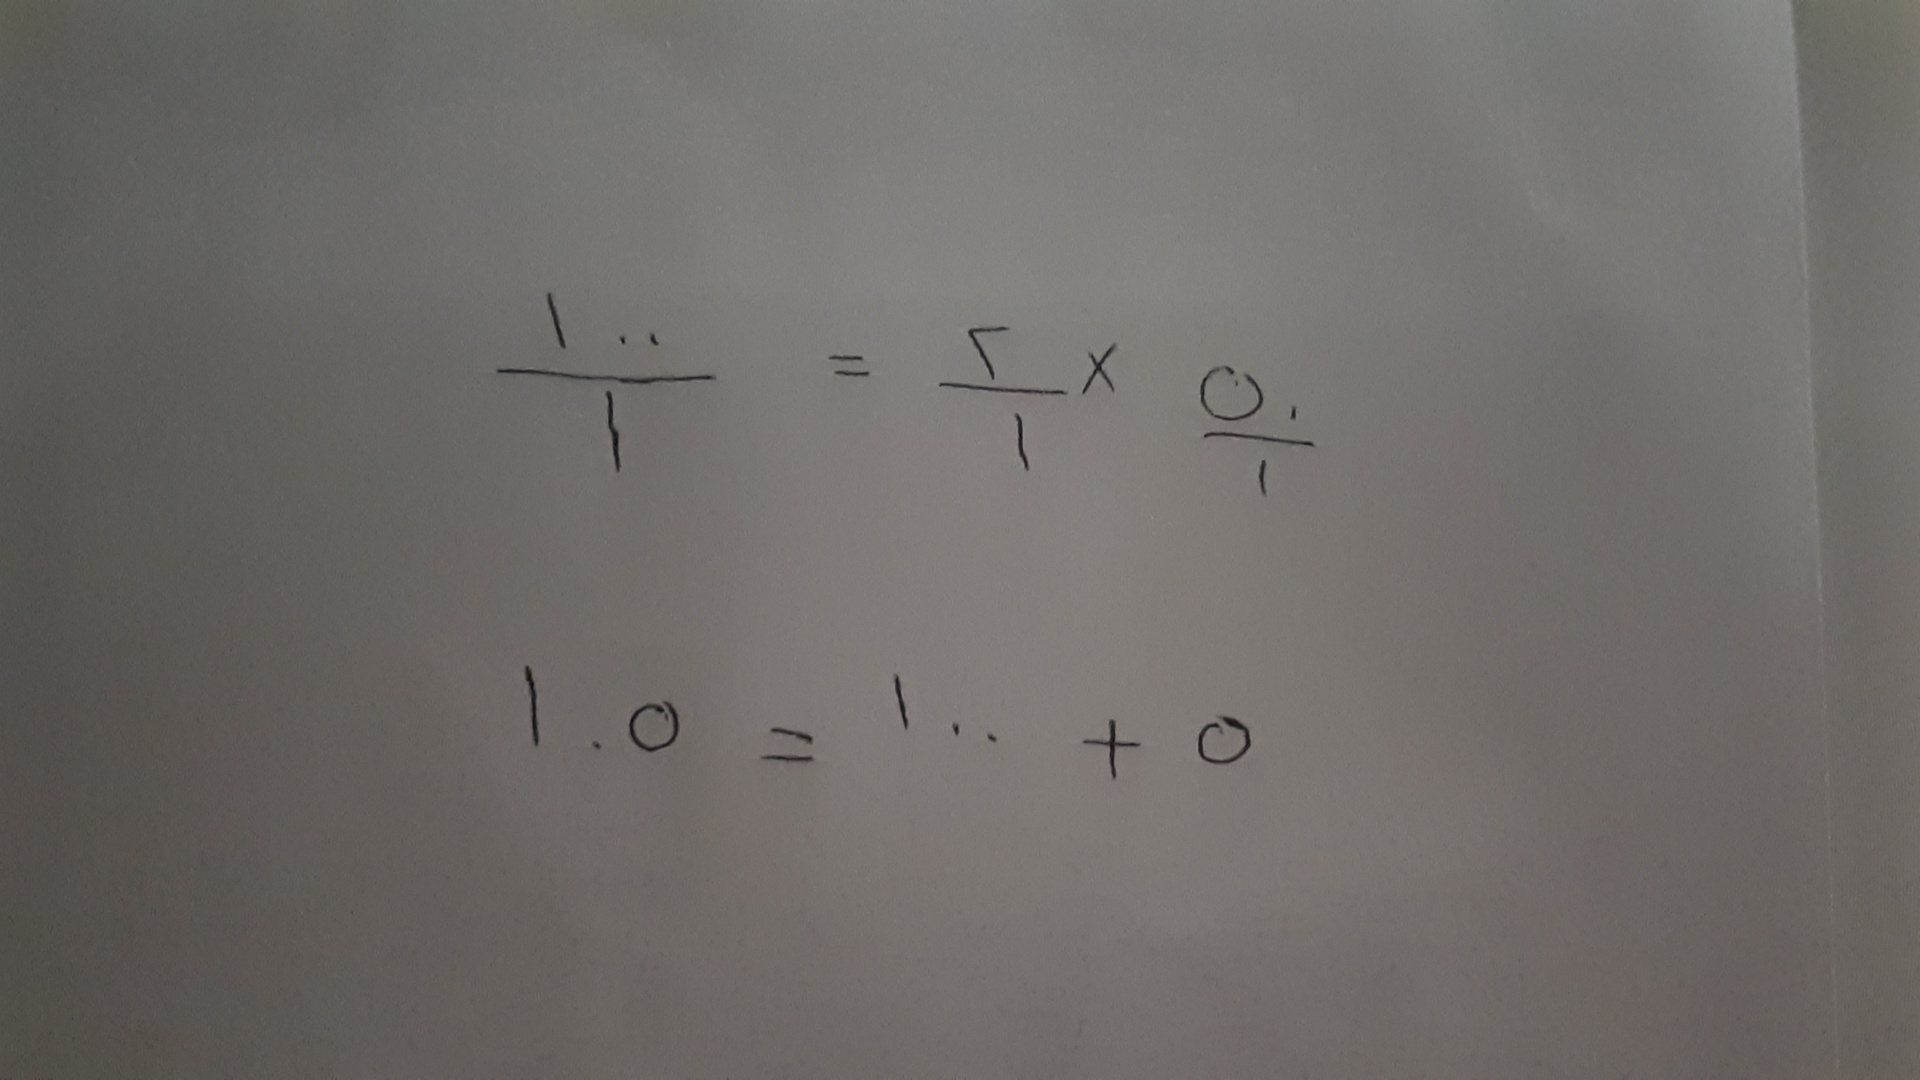 ١٠٠/١ = ٢/١ × ٥٠/١
١٠٥ = ١٠٠ + ٥